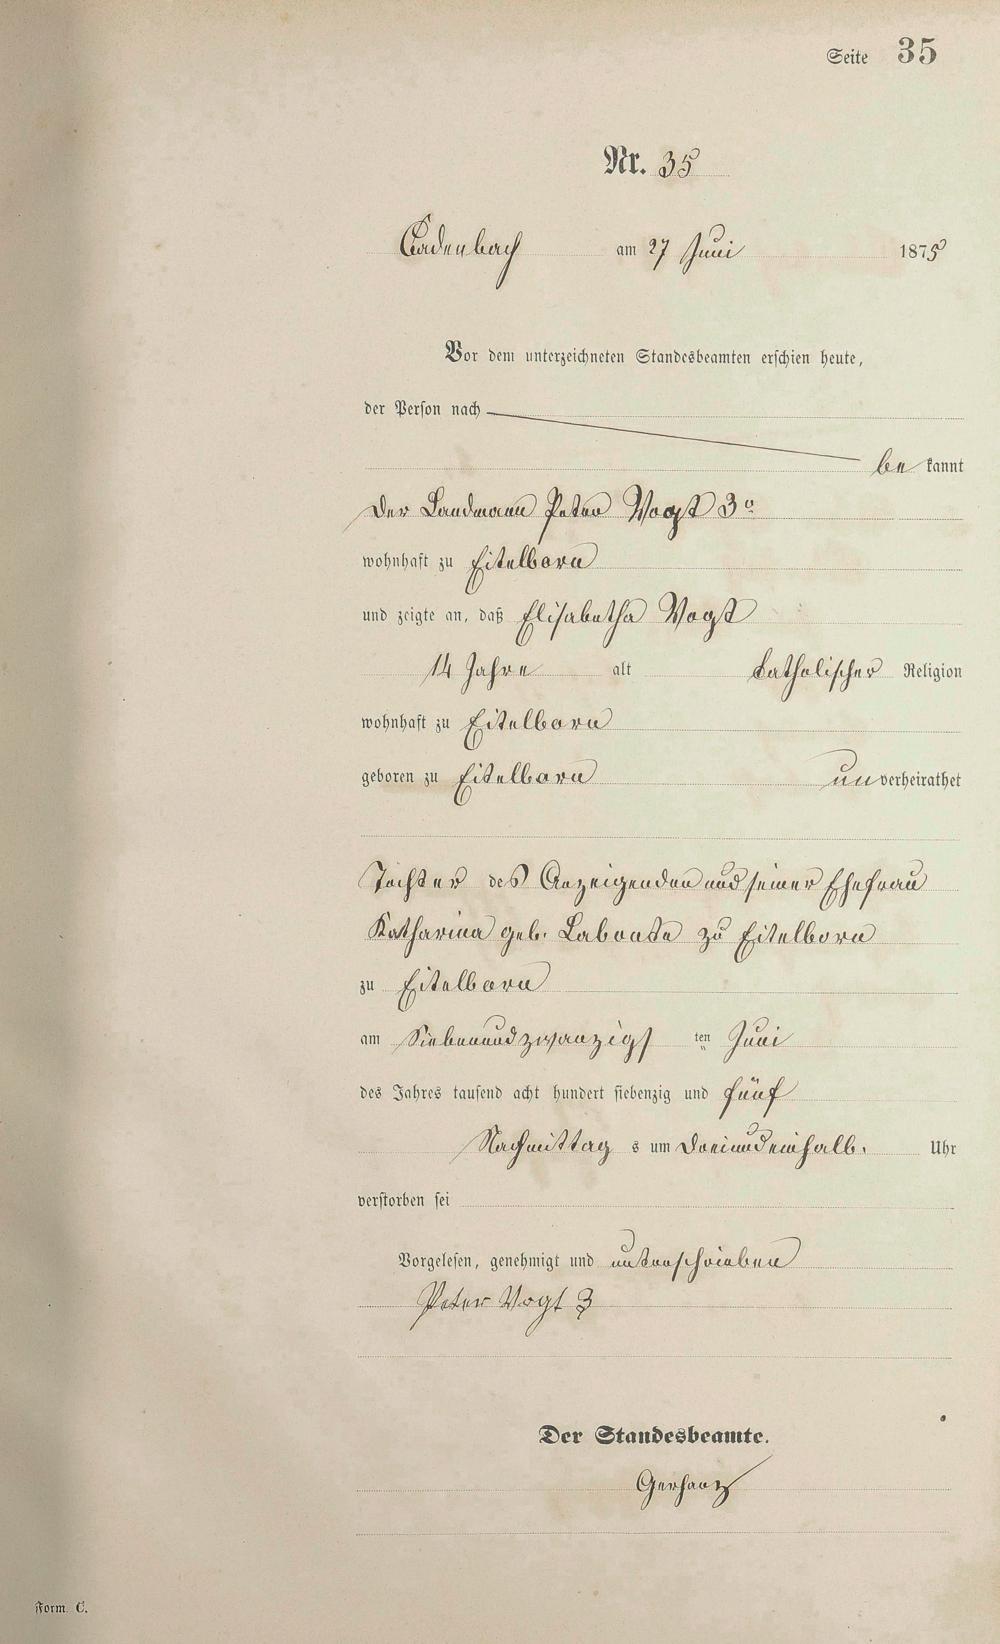 Seite 35
Nr. 35
Cadenbach am 27 Juni 1875
Vor dem unterzeichneten Standesbeamten erschien heute,
der Person nach
be kannt
Der Landmann Peter Vogt 3º
wohnhaft zu Eitelborn
und zeigte an, daß Elisabetha Vogt
14 Jahre alt katholischer Religion
wohnhaft zu Eitelborn
geboren zu Eitelborn unverheirathet
Tochter des Anzeigenden und seiner Ehefrau
Katharina geb. Labonte zu Eitelborn
zu Eitelborn
am Siebenundzwanzigs ten Juni
des Jahres tausend acht hundert siebenzig und fünf
Nachmittag s um Dreiundeinhalb. Uhr
verstorben sei
Vorgelesen, genehmigt und unterschrieben
Peter Vogt 3
Der Standesbeamte.
Gerhartz
Form. C.